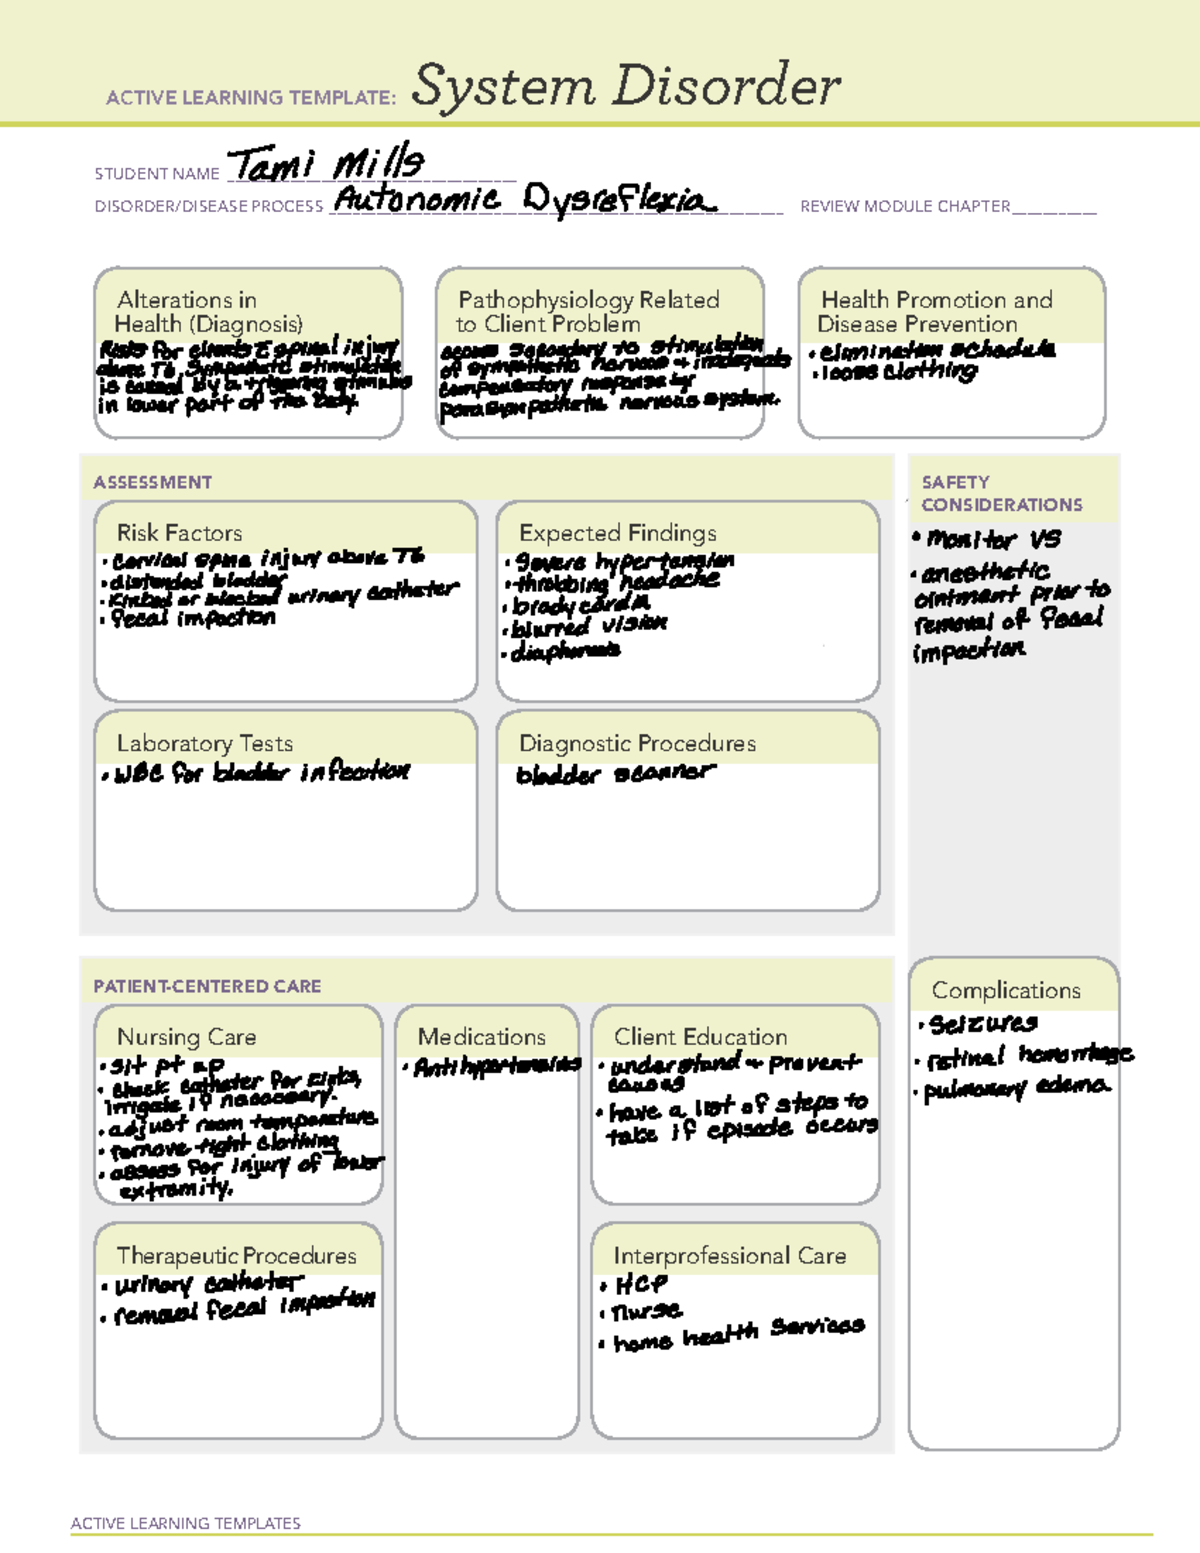 ACTIVE LEARNING TEMPLATE: System Disorder
STUDENT NAME Tami Mills
DISORDER/DISEASE PROCESS Autonomic Dysreflexia REVIEW MODULE CHAPTER
Alterations in
Health (Diagnosis)
Risks for clients c̄ spinal injury
above T6. Sympathetic stimulation
is caused by a triggering stimulus
in lower part of the body.
Pathophysiology Related
to Client Problem
occurs secondary to stimulation
of sympathetic nervous + inadequate
compensatory response by
parasympathetic nervous system.
Health Promotion and
Disease Prevention
• elimination schedule
• loose clothing
ASSESSMENT
Risk Factors
• Cervical spine injury above T6
• distended bladder
• Kinked or blocked urinary catheter
• fecal impaction
Expected Findings
• Severe hypertension
• throbbing headache
• bradycardia
• blurred vision
• diaphoresis
Laboratory Tests
• WBC for bladder infection
Diagnostic Procedures
bladder scanner
SAFETY
CONSIDERATIONS
• Monitor VS
• anesthetic
ointment prior to
removal of fecal
impaction
PATIENT-CENTERED CARE
Nursing Care
• sit pt up
• check catheter for kinks,
irrigate if necessary.
• adjust room temperature
• remove tight clothing
• assess for injury of lower
extremity.
Medications
• Antihypertensives
Client Education
• understand + prevent
causes
• have a list of steps to
take if episode occurs
Therapeutic Procedures
• urinary catheter
• removal fecal impaction
Interprofessional Care
• HCP
• Nurse
• home health services
Complications
• Seizures
• retinal hemorrhage
• pulmonary edema
ACTIVE LEARNING TEMPLATES